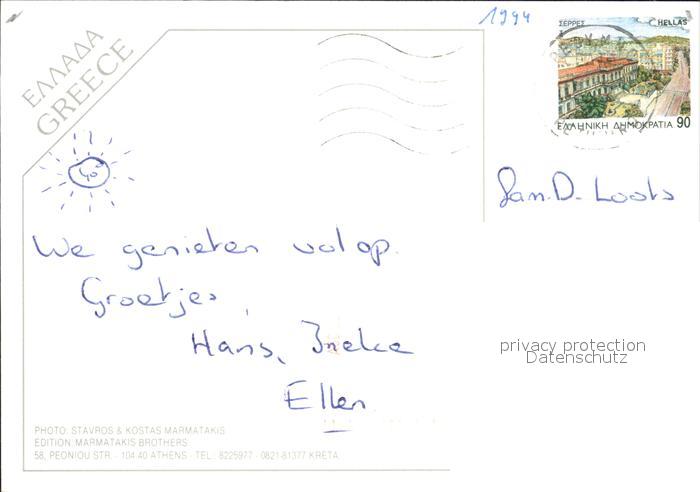 1994
ΣΕΡΡΕΣ HELLAS
ΕΛΛΗΝΙΚΗ ΔΗΜΟΚΡΑΤΙΑ 90
ΕΛΛΑΔΑ
GREECE
40°
Fam. D. Loots
We genieten volop.
Groetjes,
Hans, Ineke
Ellen
privacy protection
Datenschutz
PHOTO: STAVROS & KOSTAS MARMATAKIS
EDITION: MARMATAKIS BROTHERS
58, PEONIOU STR. - 104 40 ATHENS - TEL.: 8225977 - 0821-81377 KRETA